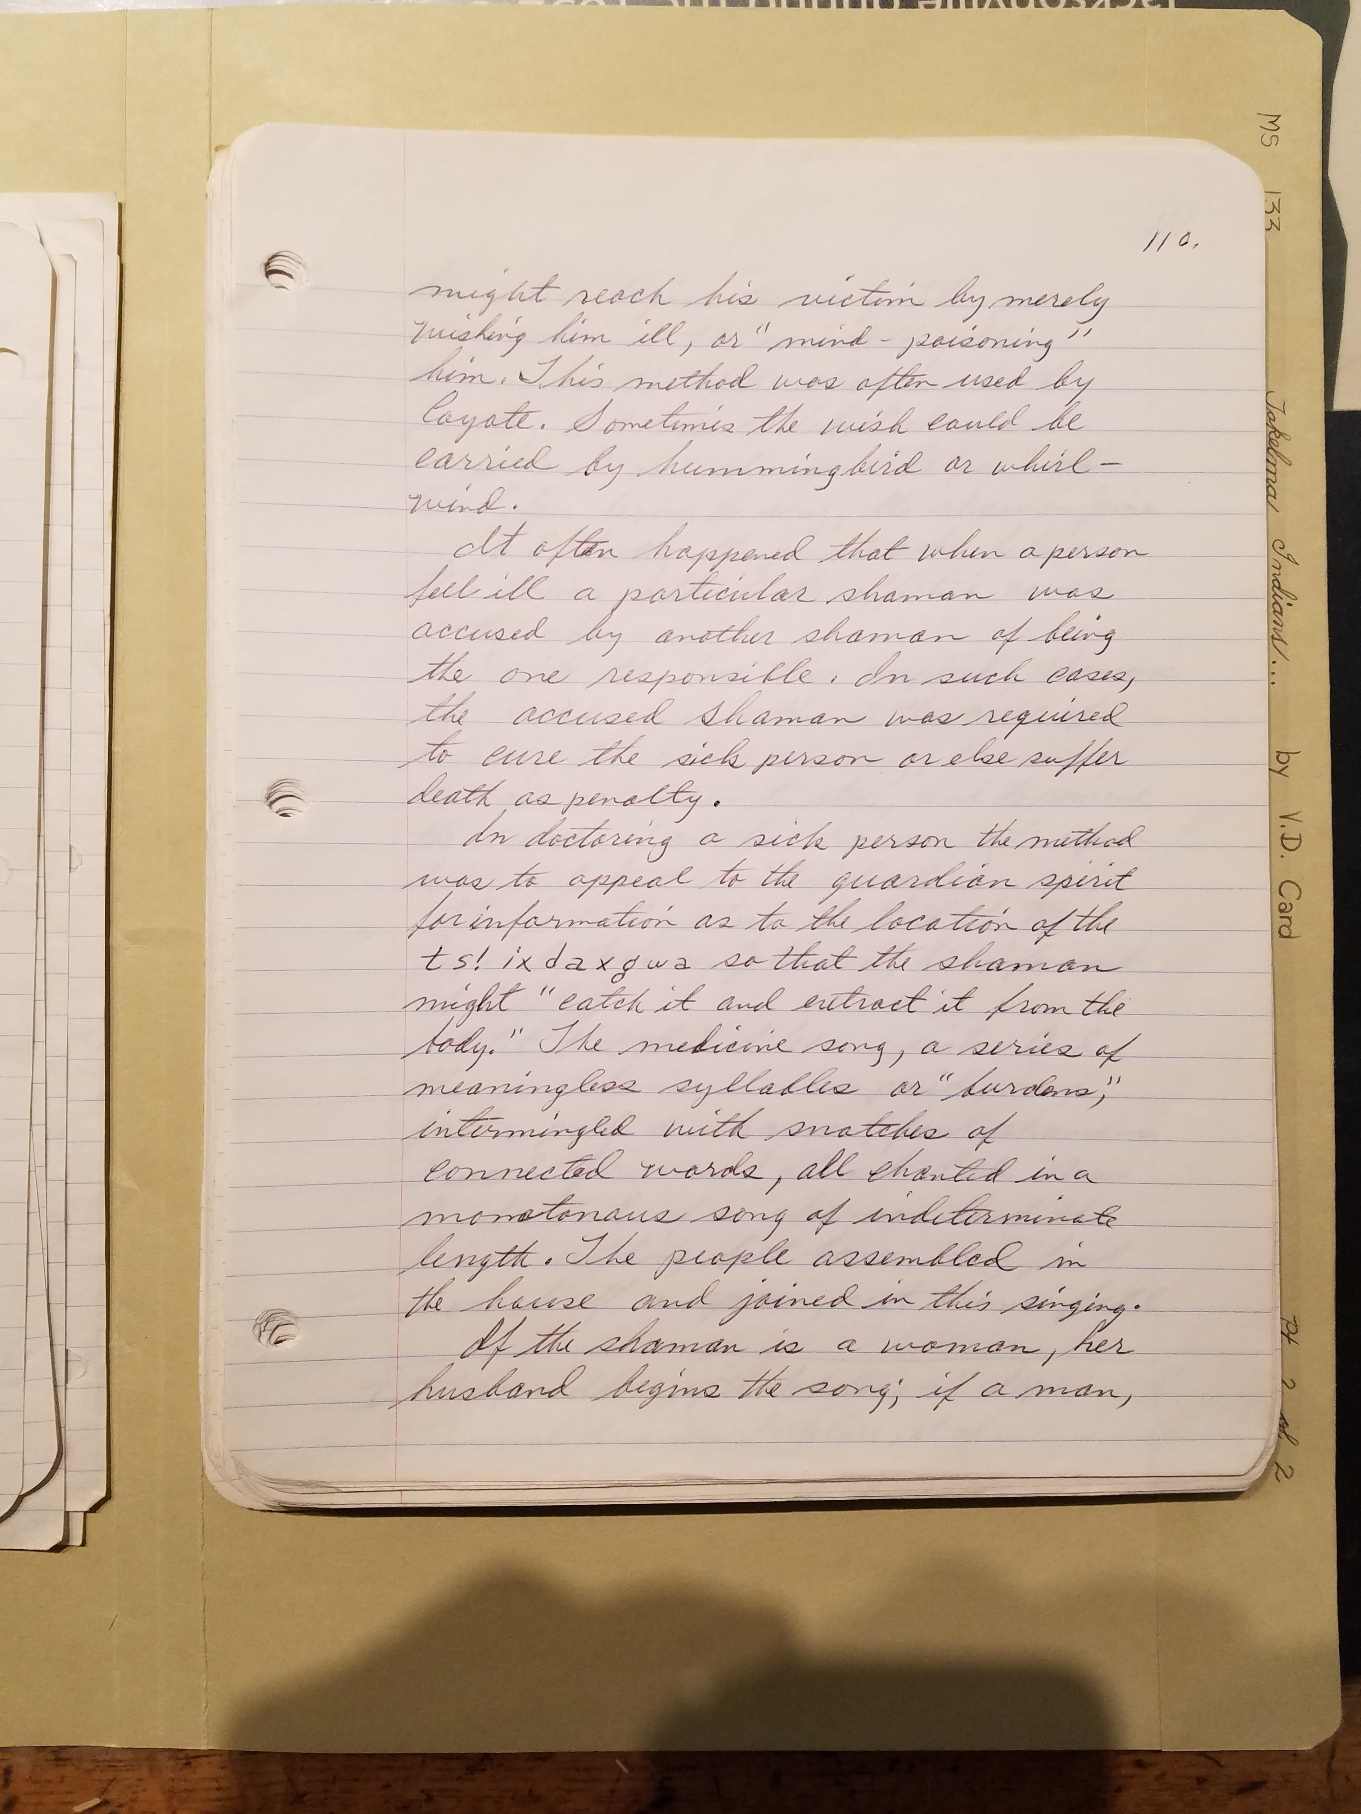 110.
might reach his victim by merely
wishing him ill, or "mind - poisoning"
him. This method was often used by
Coyote. Sometimes the wish could be
carried by hummingbird or whirl-
wind.
It often happened that when a person
fell ill a particular shaman was
accused by another shaman of being
the one responsible. In such cases,
the accused shaman was required
to cure the sick person or else suffer
death as penalty.
In doctoring a sick person the method
was to appeal to the guardian spirit
for information as to the location of the
ts! ixdaxgwa so that the shaman
might "catch it and extract it from the
body." The medicine song, a series of
meaningless syllables or "burdens",
intermingled with snatches of
connected words, all chanted in a
monotonous song of indeterminate
length. The people assembled in
the house and joined in this singing.
If the shaman is a woman, her
husband begins the song; if a man,
MS 133 Takelma Indians... by V.D. Card Pt 2 of 2